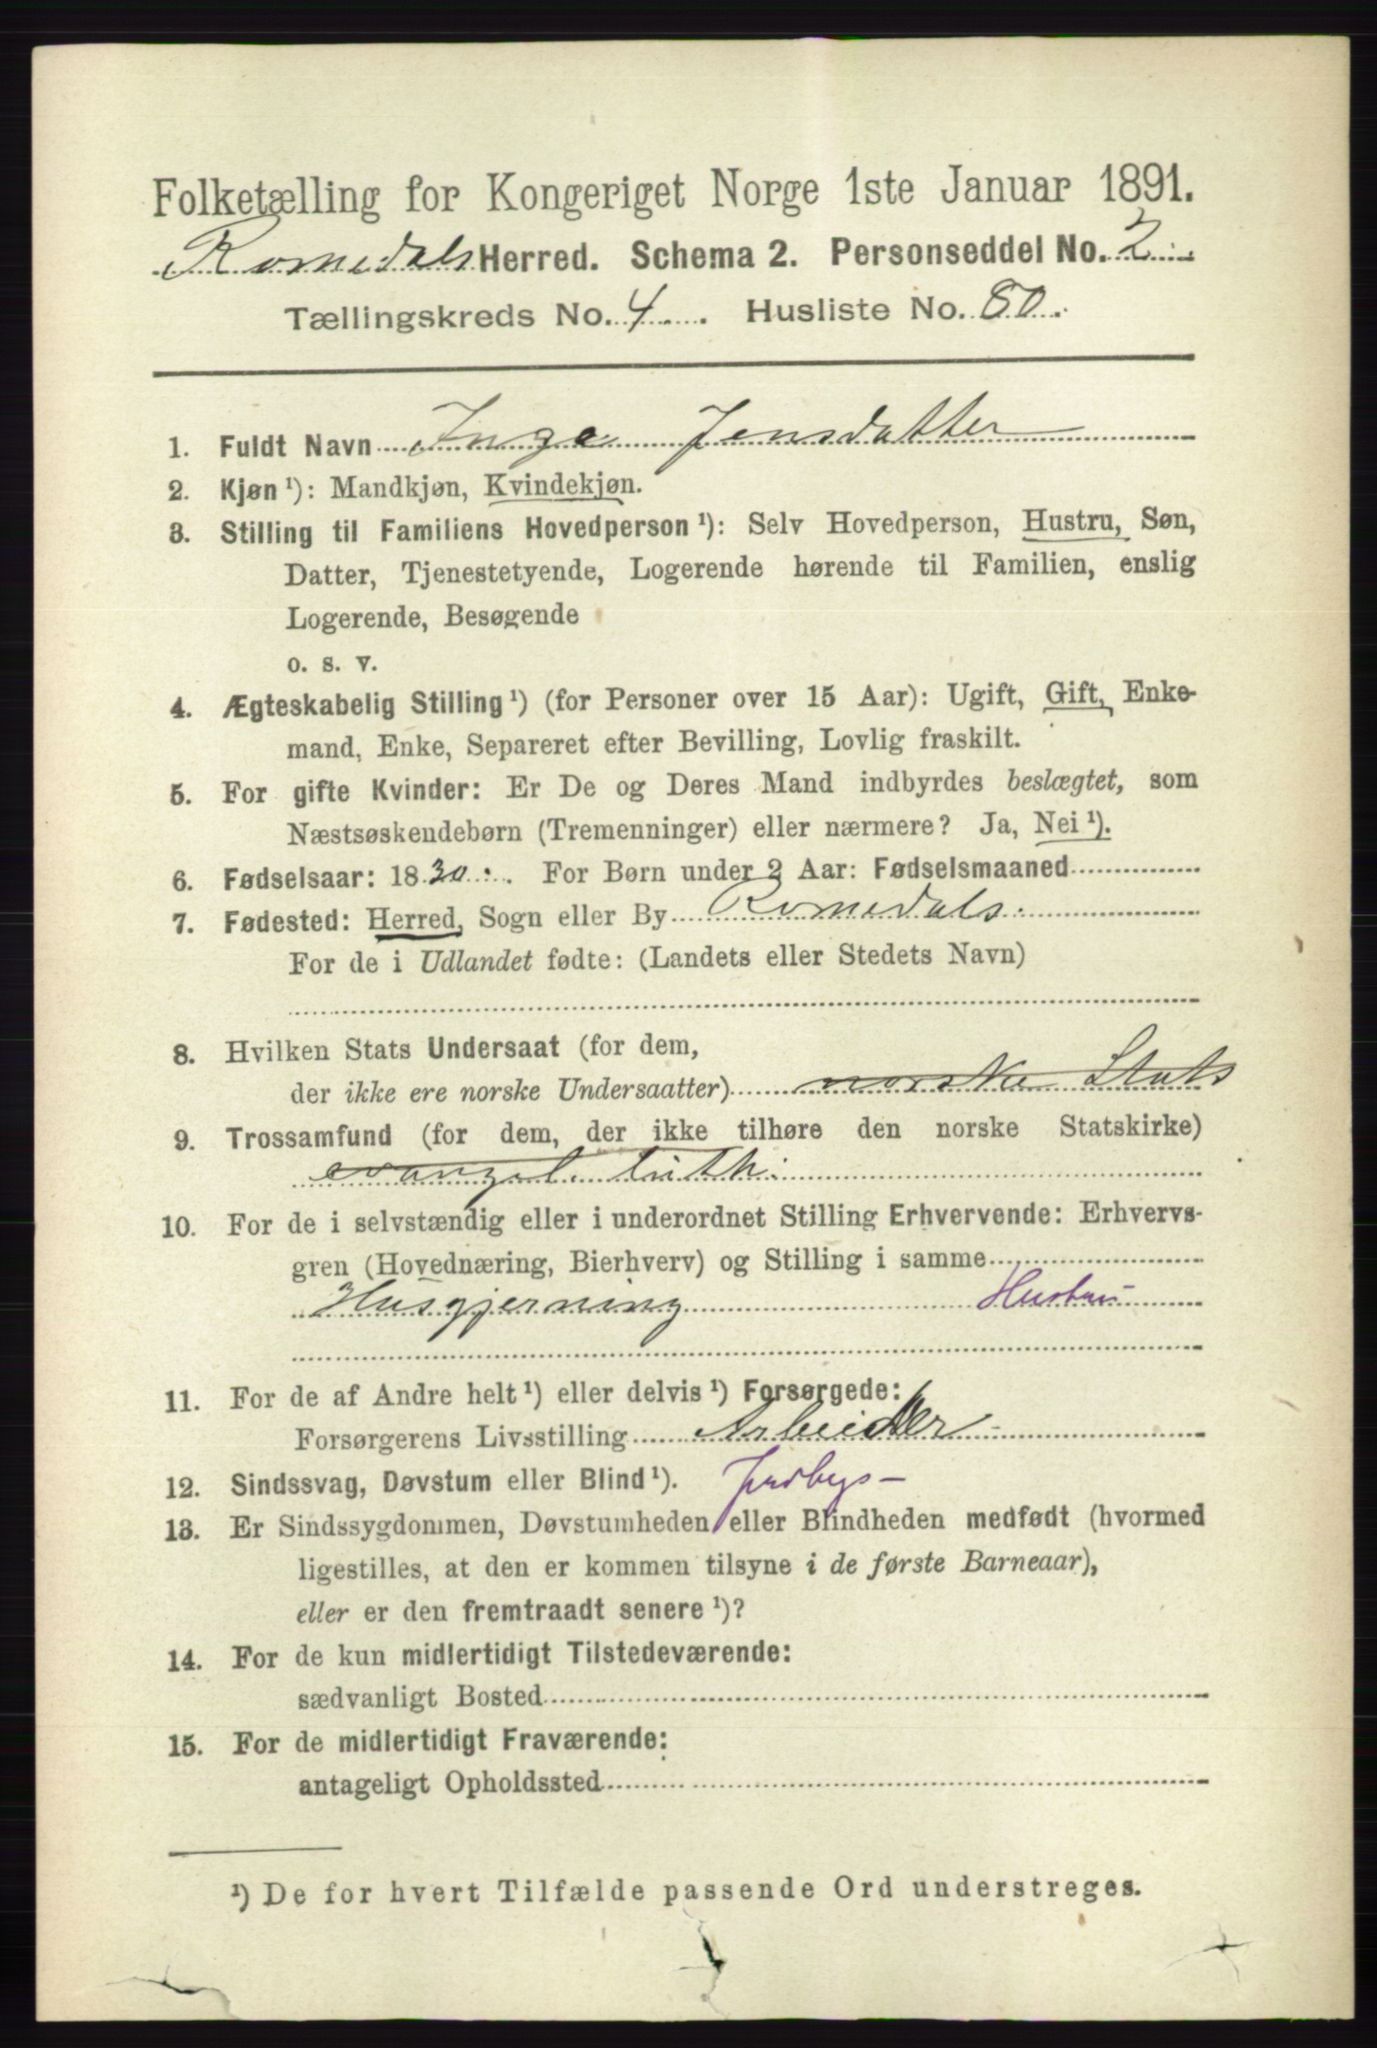 Folketælling for Kongeriget Norge 1ste Januar 1891.
Romedals Herred. Schema 2. Personseddel No. 2
Tællingskreds No. 4. Husliste No. 80.
1. Fuldt Navn Inga Jensdatter
2. Kjøn ¹): Mandkjøn, Kvindekjøn.
3. Stilling til Familiens Hovedperson ¹): Selv Hovedperson, Hustru, Søn,
Datter, Tjenestetyende, Logerende hørende til Familien, enslig
Logerende, Besøgende
o. s. v.
4. Ægteskabelig Stilling ¹) (for Personer over 15 Aar): Ugift, Gift, Enke-
mand, Enke, Separeret efter Bevilling, Lovlig fraskilt.
5. For gifte Kvinder: Er De og Deres Mand indbyrdes beslægtet, som
Næstsøskendebørn (Tremenninger) eller nærmere? Ja, Nei ¹).
6. Fødselsaar: 1830. For Børn under 2 Aar: Fødselsmaaned
7. Fødested: Herred, Sogn eller By Romedals.
For de i Udlandet fødte: (Landets eller Stedets Navn)
8. Hvilken Stats Undersaat (for dem,
der ikke ere norske Undersaatter) norske Stats
9. Trossamfund (for dem, der ikke tilhøre den norske Statskirke)
evangel. luth.
10. For de i selvstændig eller i underordnet Stilling Erhvervende: Erhvervs-
gren (Hovednæring, Bierhverv) og Stilling i samme
Husgjerning Hustru
11. For de af Andre helt ¹) eller delvis ¹) Forsørgede:
Forsørgerens Livsstilling Arbeider
12. Sindssvag, Døvstum eller Blind ¹). Jordbys-
13. Er Sindssygdommen, Døvstumheden eller Blindheden medfødt (hvormed
ligestilles, at den er kommen tilsyne i de første Barneaar),
eller er den fremtraadt senere ¹)?
14. For de kun midlertidigt Tilstedeværende:
sædvanligt Bosted
15. For de midlertidigt Fraværende:
antageligt Opholdssted
¹) De for hvert Tilfælde passende Ord understreges.